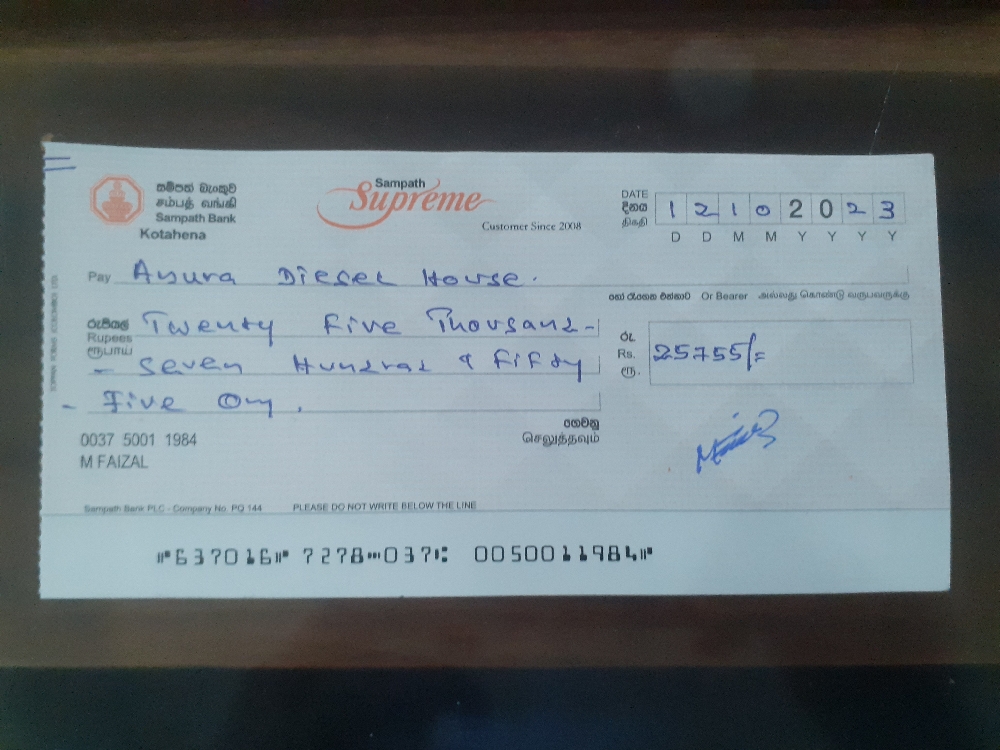 සම්පත් බැංකුව
சம்பத் வங்கி
Sampath Bank
Kotahena
Sampath
Supreme
Customer Since 2008
DATE
දිනය
திகதி
1 2 1 0 2 0 2 3
D D M M Y Y Y Y
Pay Anura Diesel House.
හෝ රැගෙන එන්නාට Or Bearer அல்லது கொண்டு வருபவருக்கு
රුපියල්
Rupees
ரூபாய்
Twenty Five Thousand -
- Seven Hundred & Fifty
- Five Only.
රු.
Rs.
ரூ.
25755/=
ගෙවනු
செலுத்தவும்
0037 5001 1984
M FAIZAL
Sampath Bank PLC - Company No. PQ 144
PLEASE DO NOT WRITE BELOW THE LINE
⑈637016⑈ 7278⑉037⑆ 0050011984⑈